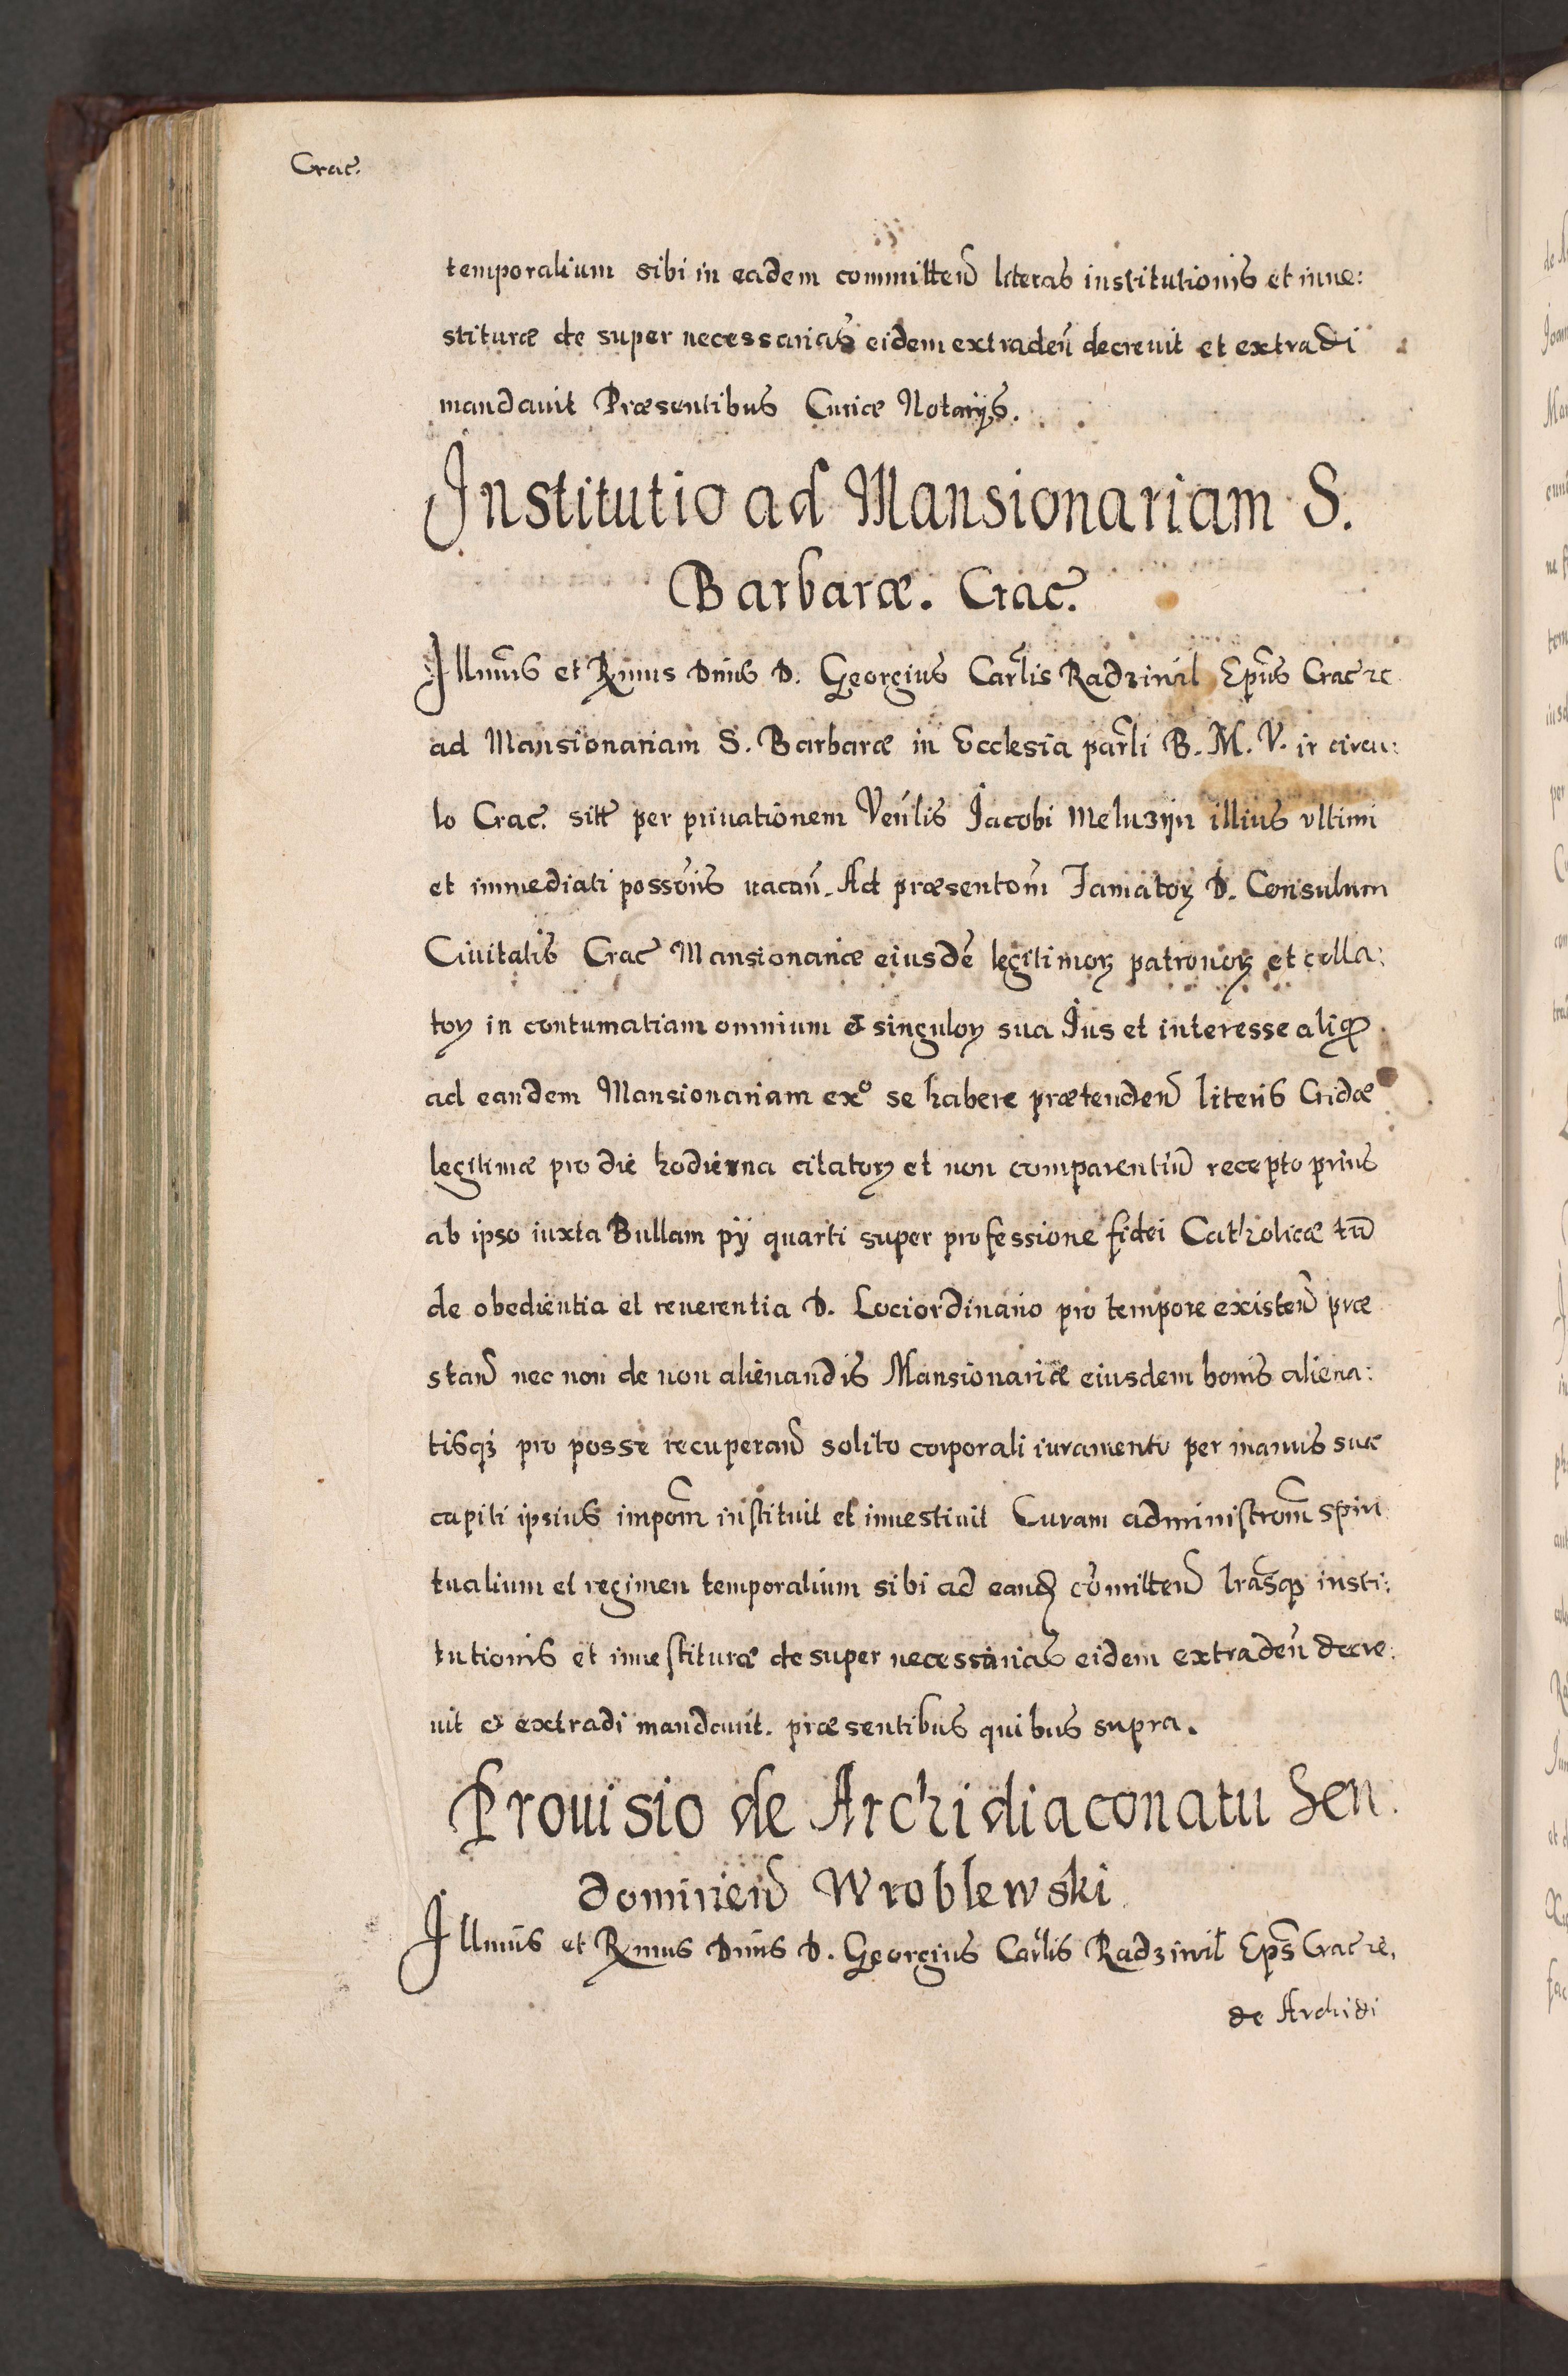 Crac̃.
temporalium sibi in eadem committeñ literas institutionis et inue:
stituræ de super necessarias eidem extradeñ decreuit et extradi
mandauit Præsentibus Curiæ Notarijs.
Institutio ad Mansionariam S.
Barbaræ. Crac̃.
Illmũs et Rmus Dnũs D. Georgius Car̃lis Radziwil Ep̃us Crac̃ ꝛc
ad Mansionariam S. Barbaræ in Ecclesia par̃li B. M. V. in circu:
lo Crac̃. sitt̃ per priuationem Veñlis Jacobi Meluzijn illius vltimi
et immediati possõris uacañ. Ad præsentom̃ Famatoꝝ D. Consulum
Ciuitatis Crac̃ Mansionariæ eiusdẽ legitimoꝝ patronoꝝ et colla:
toꝝ in contumatiam omnium & singuloꝝ sua Jus et interesse aliqđ
ad eandem Mansionariam exº se habere prætendeñ literis Cridæ
legitimæ pro die hodierna citatoꝝ et non comparentiũ recepto prius
ab ipso iuxta Bullam pij quarti super professione fidei Catholicæ tũ
de obedientia et reuerentia D. Lociordinario pro tempore existeñ præ
stañ nec non de non alienandis Mansionariæ eiusdem bonis aliena:
tisqꝫ pro posse recuperañ solito corporali iuramento per manus suæ
capiti ipsius impom̃ instituit et inuestiuit Curam administrom̃ spiri
tualium et regimen temporalium sibi ad eand̃ cõmitteñ lrãsqꝫ insti:
tutionis et inuestituræ de super necessarias eidem extradeñ decre:
uit & extradi mandauit. præsentibus quibus supra.
Prouisio de Archidiaconatu Sen:
domirieñ Wroblewski
Illmũs et Rmus Dnũs D. Georgius Car̃lis Radziwil Ep̃s Crac̃ ꝛc,
de Archidi